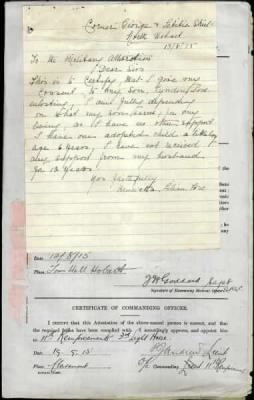 Corner George & Letitia Street
North Hobart
19/8/15
To the Military
Dear Sirs
This is to Certify that I give my
Consent to my Son, Lyndey Dore
enlisting, I am fully depending
on what my son earns, for my
living, as I have no other support
I have one adopted child a little boy
age 6 years, I have not received
any support from my husband
for 13 years.
Yours faithfully
Ellen Dore
Date 19/8/15
Place Town Hall Hobart
J W Goddard Capt
Signature of Examining Medical Officer
CERTIFICATE OF COMMANDING OFFICER.
I CERTIFY that this Attestation of the above-named person is correct, and that
the required forms have been complied with. I accordingly approve, and appoint him
to 11th Reinforcements 3rd Light Horse
Date 19. 8. 15
Place Claremont
Lieut